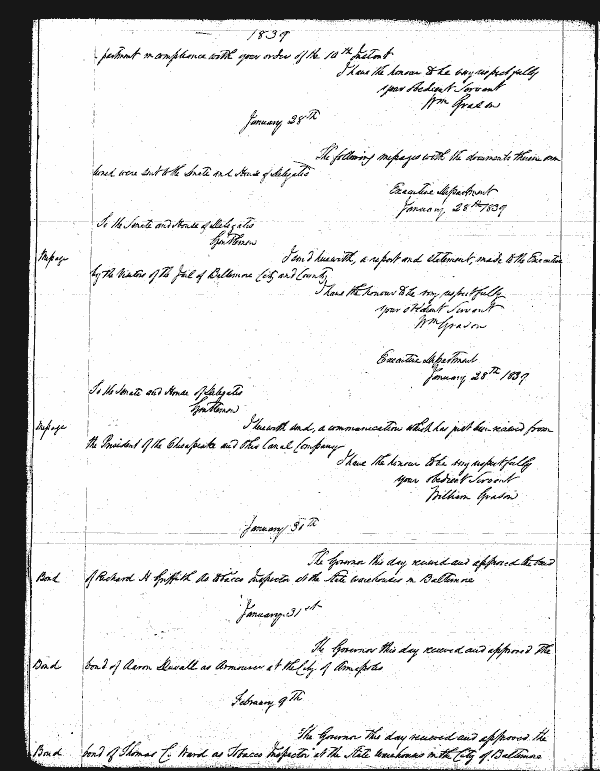 1839
partment in compliance with your order of the 10th Instant
I have the honour to be very respectfully
your obedient Servant
Wm Grason
January 28th
The following messages with the documents therein men
tioned were sent to the Senate and House of Delegates
Executive Department
January 28th 1839
To the Senate and House of Delegates
Gentlemen
Message
I send herewith, a report and statement, made to the Executive
by the Visitors of the Jail of Baltimore City and County
I have the honour to be very respectfully
your obedient Servant
Wm Grason
Executive Department
January 28th 1839
To the Senate and House of Delegates
Gentlemen
Message
I herewith send, a communication which has just been received from
the President of the Chesapeake and Ohio Canal Company
I have the honour to be very respectfully
your obedient Servant
William Grason
January 30th
The Governor this day received and approved the bond
Bond
of Richard H Griffith as Tobacco Inspector at the State warehouses in Baltimore
January 31st
The Governor this day received and approved the
Bond
bond of Aaron Duvall as Armourer at the City of Annapolis
February 9th
The Governor this day received and approved the
Bond
bond of Thomas C. Ward as Tobacco Inspector at the State warehouses in the City of Baltimore